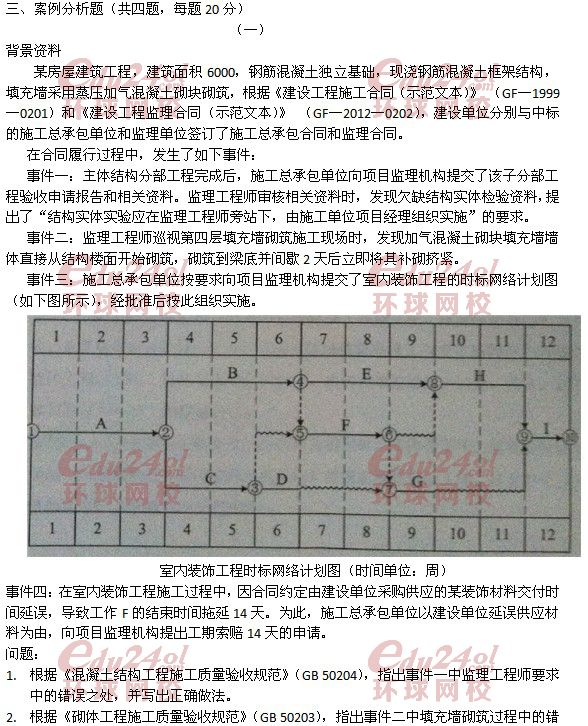 三、案例分析题（共四题，每题 20 分）
（一）
背景资料
某房屋建筑工程，建筑面积 6000，钢筋混凝土独立基础，现浇钢筋混凝土框架结构，
填充墙采用蒸压加气混凝土砌块砌筑，根据《建设工程施工合同（示范文本）》（GF—1999
—0201）和《建设工程监理合同（示范文本）》（GF—2012—0202），建设单位分别与中标
的施工总承包单位和监理单位签订了施工总承包合同和监理合同。
在合同履行过程中，发生了如下事件：
事件一：主体结构分部工程完成后，施工总承包单位向项目监理机构提交了该子分部工
程验收申请报告和相关资料。监理工程师审核相关资料时，发现欠缺结构实体检验资料，提
出了“结构实体实验应在监理工程师旁站下，由施工单位项目经理组织实施”的要求。
事件二：监理工程师巡视第四层填充墙砌筑施工现场时，发现加气混凝土砌块填充墙墙
体直接从结构楼面开始砌筑，砌筑到梁底并间歇 2 天后立即将其补砌挤紧。
事件三：施工总承包单位按要求向项目监理机构提交了室内装饰工程的时标网络计划图
（如下图所示），经批准后按此组织实施。
1 2 3 4 5 6 7 8 9 10 11 12
B E H
④ ⑧
A F I
① ② ⑤ ⑥ ⑨ ⑩
C D G
③ ⑦
1 2 3 4 5 6 7 8 9 10 11 12
室内装饰工程时标网络计划图（时间单位：周）
事件四：在室内装饰工程施工过程中，因合同约定由建设单位采购供应的某装饰材料交付时
间延误，导致工作 F 的结束时间拖延 14 天。为此，施工总承包单位以建设单位延误供应材
料为由，向项目监理机构提出工期索赔 14 天的申请。
问题：
1. 根据《混凝土结构工程施工质量验收规范》（GB 50204），指出事件一中监理工程师要求
中的错误之处，并写出正确做法。
2. 根据《砌体工程施工质量验收规范》（GB 50203），指出事件二中填充墙砌筑过程中的错
edu24ol
环球网校
edu24ol
环球网校
edu24ol
环球网校
edu24ol
环球网校
edu24ol
环球网校
edu24ol
环球网校
edu24ol
环球网校
edu24ol
环球网校